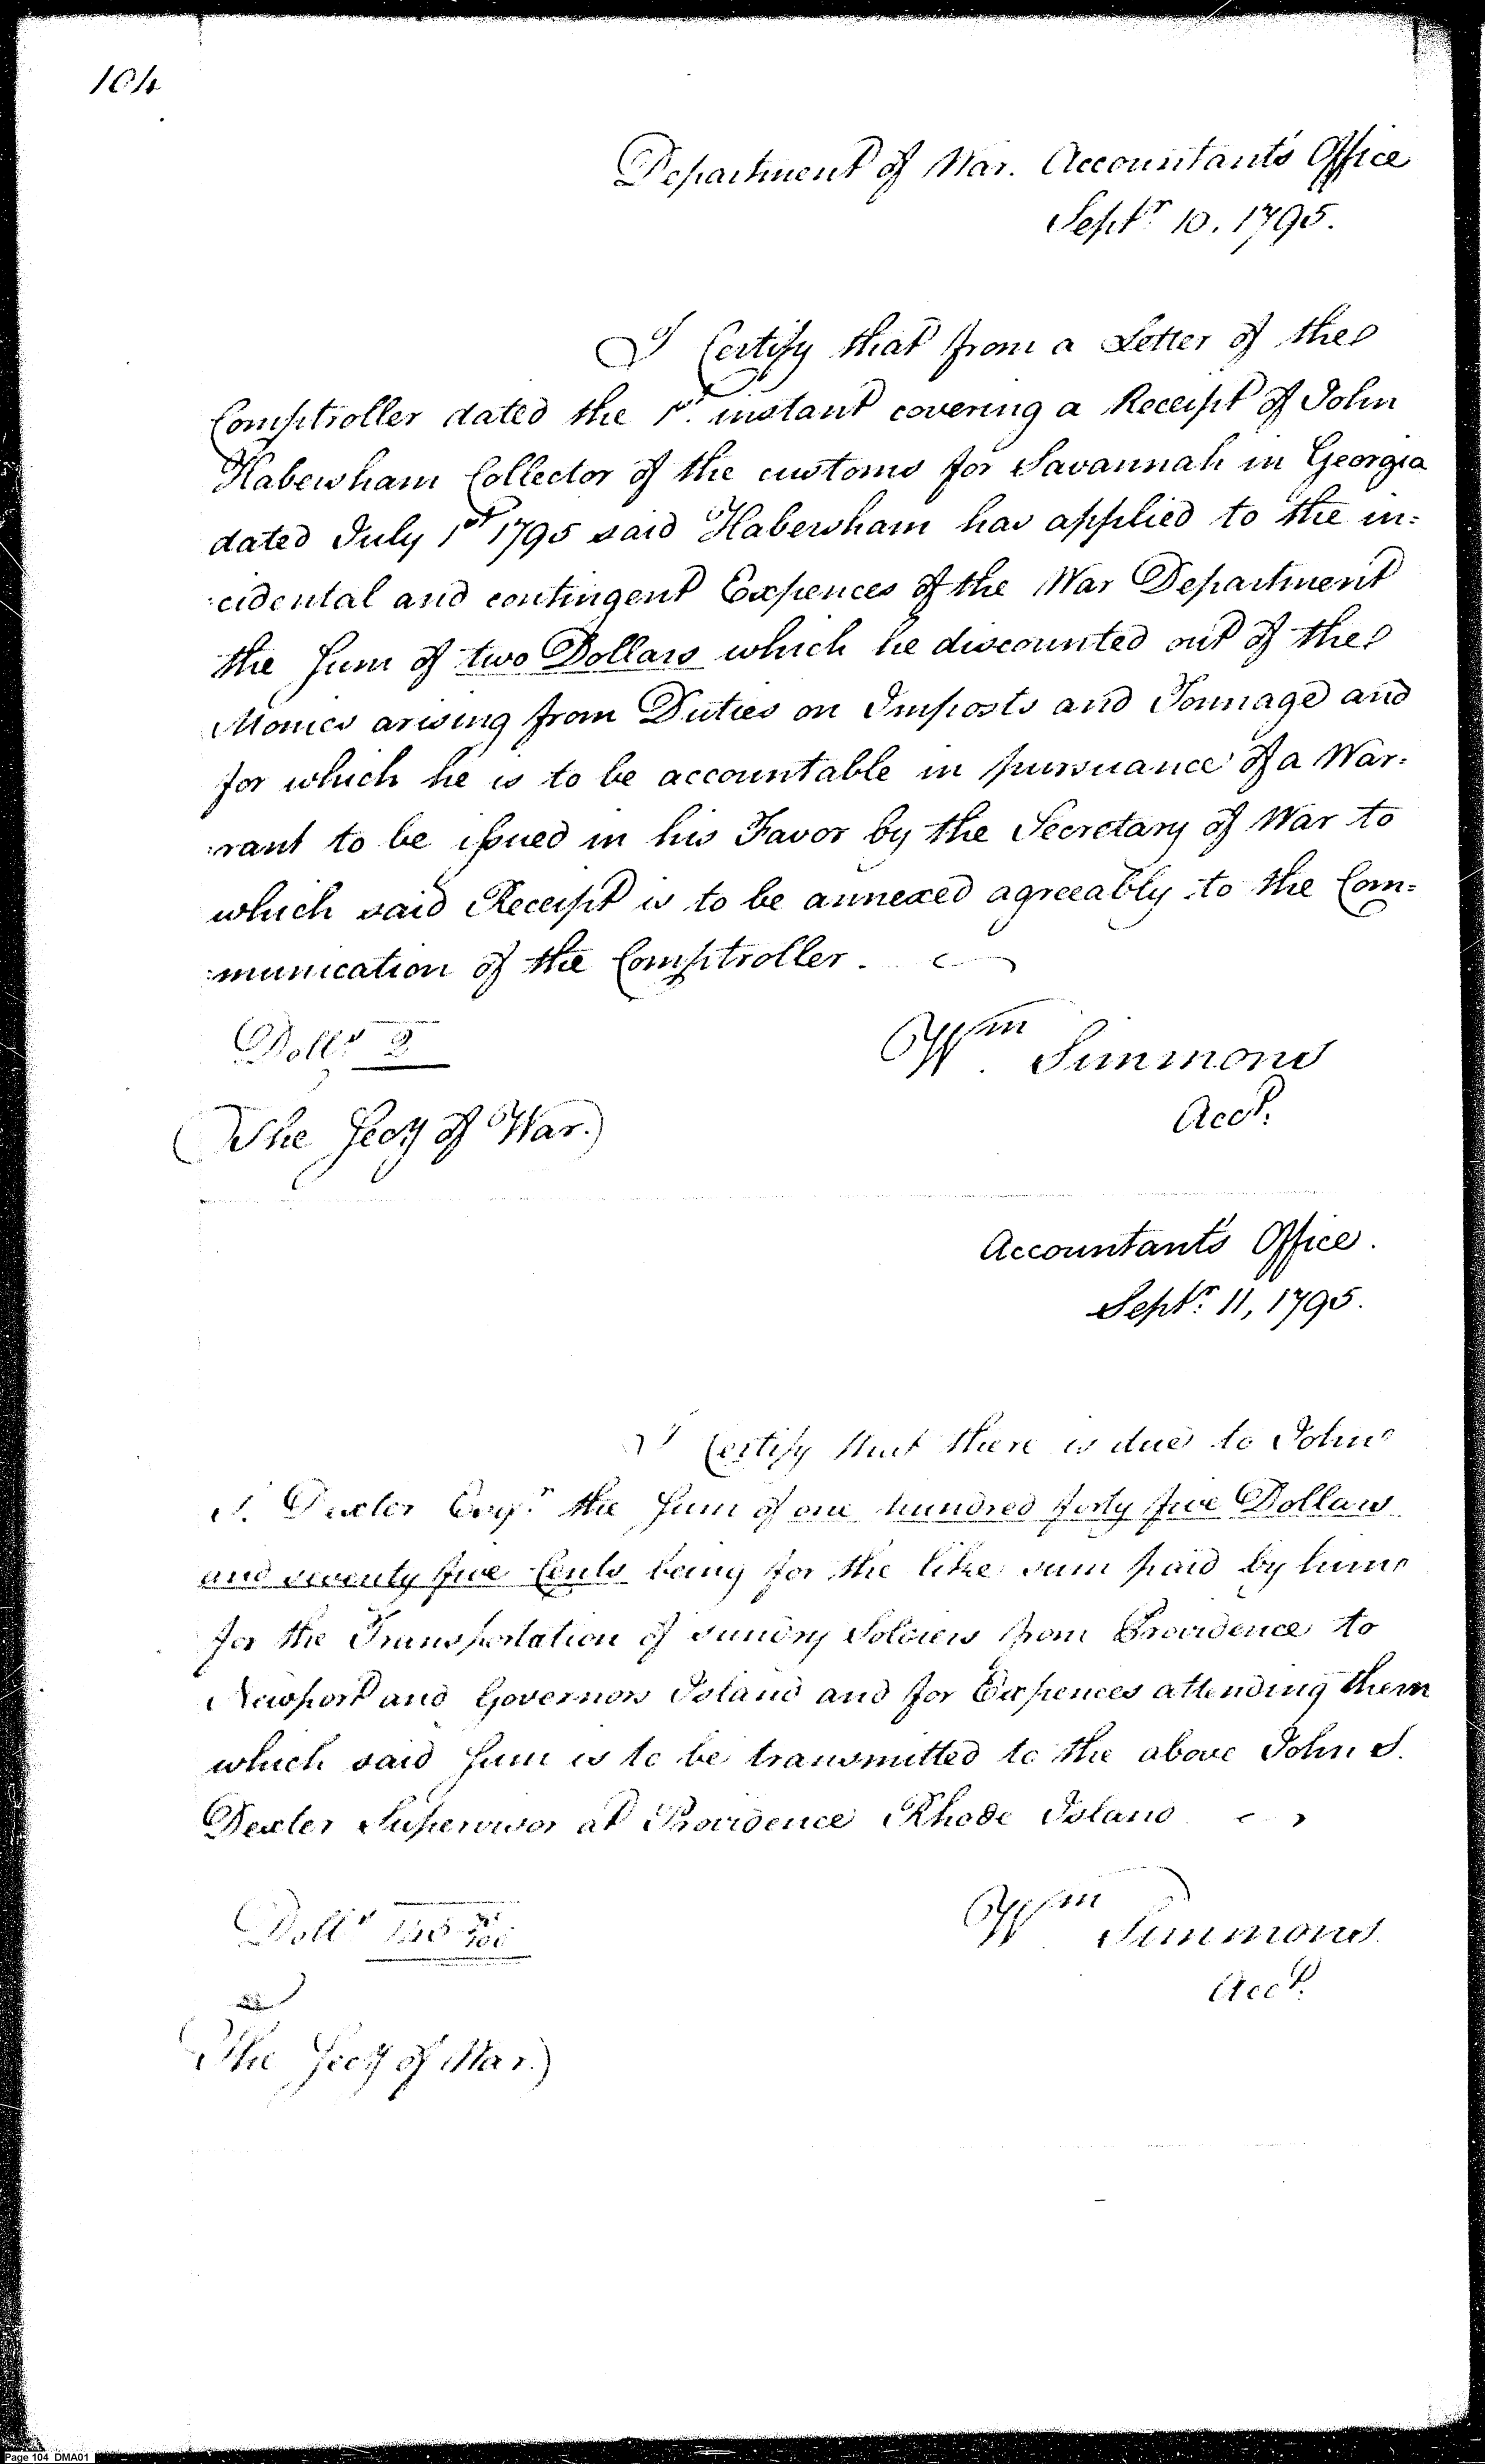 104
Department of War. Accountant's Office
Septr. 10. 1795.
I Certify that from a Letter of the
Comptroller dated the 1st. instant covering a Receipt of John
Habersham Collector of the customs for Savannah in Georgia
dated July 1st 1795 said Habersham has applied to the in=
:cidental and contingent Expences of the War Department
the Sum of two Dollars which he discounted out of the
Monies arising from Duties on Imposts and Tonnage and
for which he is to be accountable in pursuance of a War:
:rant to be issued in his Favor by the Secretary of War to
which said Receipt is to be annexed agreeably to the Com=
:munication of the Comptroller.
Dolls. 2
Wm. Simmons
Acct.
(The Secy of War.)
Accountant's Office.
Septr. 11, 1795.
I Certify that there is due to John
S. Dexter Esqr. the Sum of one hundred forty five Dollars
and seventy five Cents being for the like sum paid by him
for the Transportation of sundry Soldiers from Providence to
Newport and Governors Island and for Expences attending them
which said Sum is to be transmitted to the above John S.
Dexter Supervisor at Providence Rhode Island
Dolls 145 75/100
Wm Simmons.
Acct.
(The Secy of War.)
Page 104 DMA01